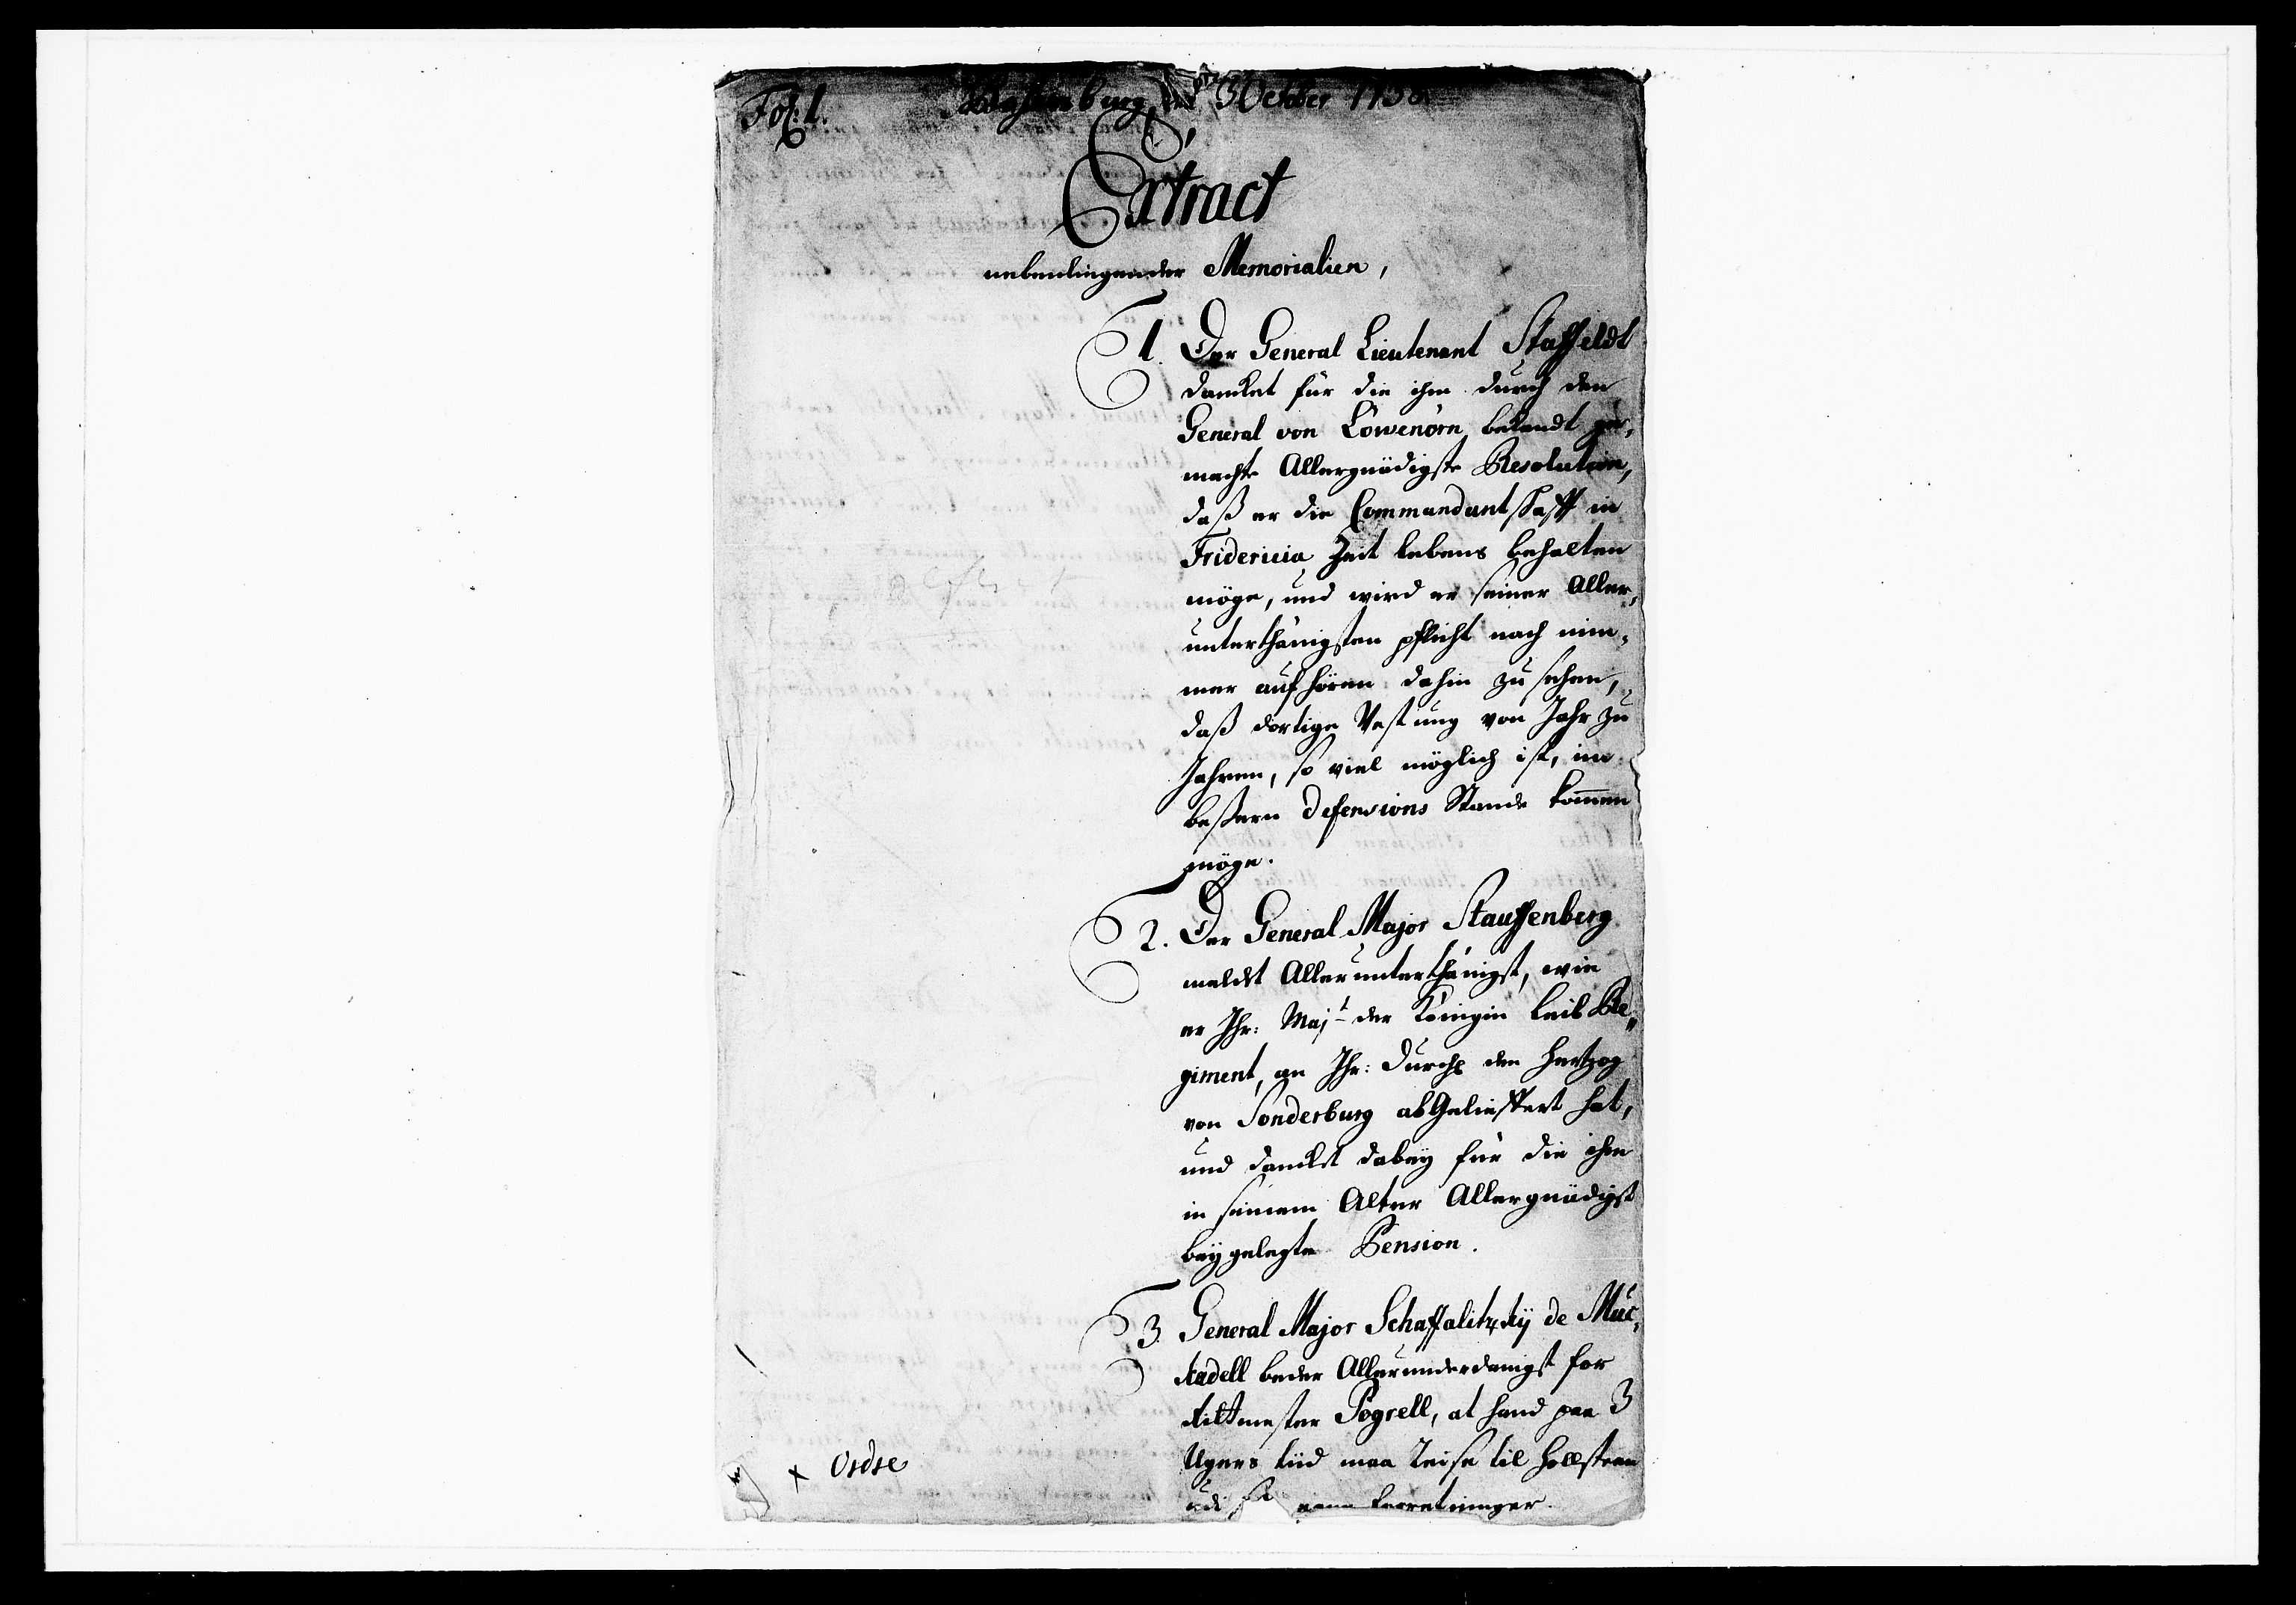 Fol: 1.
3 October 1738
Extract
nebenliegender Memorialien,
1. Der General Lieutenant Staffeldt
dancket für die ihm durch den
General von Löwenörn bekandt ge,
machte Allergnädigste Resolution,
daß er die Commandantschafft in
Fridericia Zeit lebens behalten
möge, und wird er seiner Aller,
unterthänigsten pflicht nach nim,
mer aufhören dahin zu sehen,
daß dortige Vestung von Jahr zu
Jahren, so viel möglich ist, im
beßern defensions Stande kom̄en
möge.
2. Der General Major Stauffenberg
meldet Allerunterthänigst, wie
er Ihr: Majt der Königin Leib Re,,
giment, an Ihr: Durchl den Hertzog
von Sonderburg abgelieffert hat,
und dancket dabey für die ihm
in seinem Alter Allergnädigst
beygelegte Pension.
3. General Major Schaffalitzkÿ de Muc,
kadell beder Allerunderdanigst for
Rittmester Pogrell, at hand paa 3
Ugers tiid maa Reise til Hollsteen
udi forretninger.
x Ordre